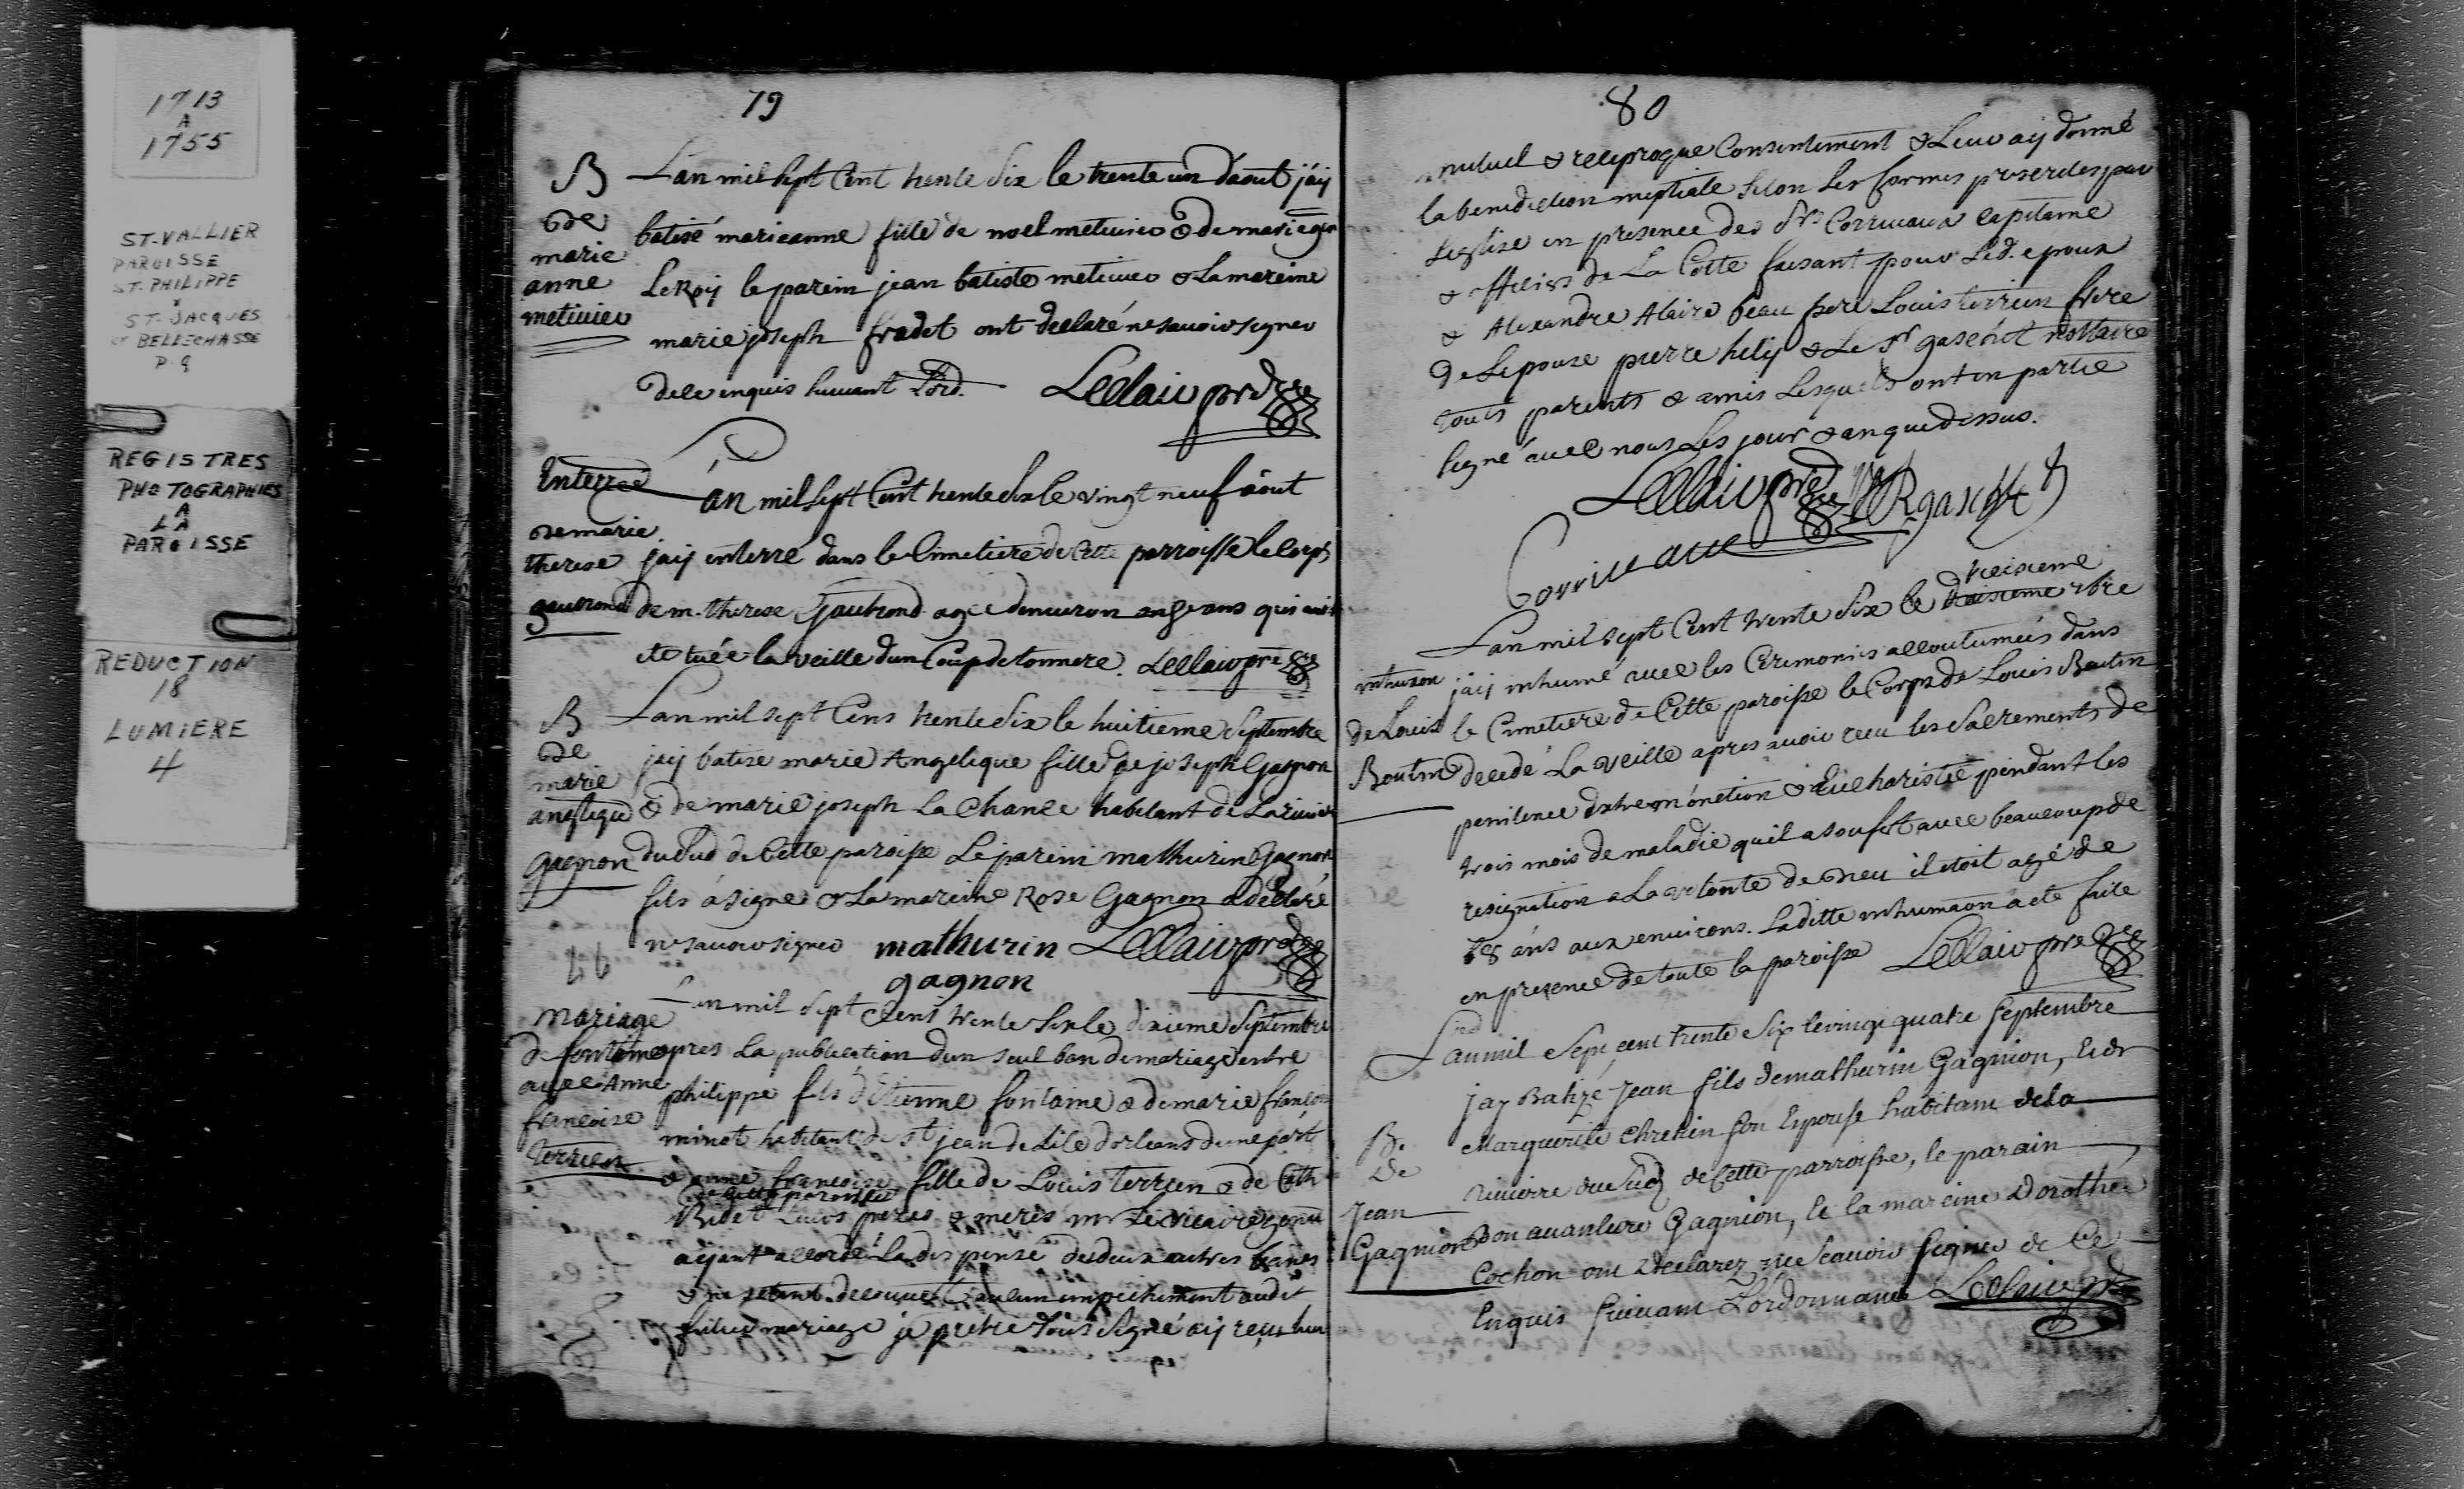 1713
A
1755
ST-VALLIER
PAROISSE
ST. PHILIPPE
&
ST. JACQUES
BELLECHASSE
P. Q
REGISTRES
PHOTOGRAPHIES
A
LA
PAROISSE
REDUCTION
18
LUMIERE
4
79
B
de
marie
anne
metivier
Lan mil sept Cent trente six le trente un daout jáy
batisé marieanne fille de noel metivier & de marie
LeRoy le parein jean batiste metivier & La mareine
marie joseph fradet ont declaré ne savoir signer
de ce enquis suivant Lord. Leclair ptre
Enterre
de marie
therese
gautrond
Lán mil sept Cent trente six le vingt neuf áout
jaÿ enterré dans le Cimetiere de Cette parroisse le Corps
de m. therese Gautrond agee denviron onze ans qui avoit
été tuée la veille dun Coup de tonnere. Leclair ptre
B
de
marie
angelique
Gagnon
Lan mil sept Cens trente six le huitieme Septembre
jay batise marie Angelique fille de joseph Gagnon
& de marie joseph La Chance habitant de La riviere
du Sud de Cette paroisse Le parein mathurin Gagnon
fils a signé & La mareine Rose Gagnon a déclaré
ne savoir signer mathurin Leclair ptre
gagnon
mariage
de fontaine
avec Anne
francoise
Terrien
Lan mil sept Cens trente six le dixieme Septembre
apres La publication dun seul ban de mariage entre
philippe fils d'Etienne fontaine & de marie francoise
minot habitant de st jean de Lile dorleans dune part
& anne francoise fille de Louis terrien & de Cath
de cette paroisse
Bidet Leurs peres & meres mr Le vicaire
ayant accordé La dispense des deux autres bans
& ne setant decouvert aucun empechement audit
futur mariage je pretre sous signé aÿ reçu leur
80
mutuel & reciproque Consentement & Leur aÿ donné
la benediction nuptiale selon les formes prescrites par
Leglise en presence des Srs Corriveaux capitaine
& officiers de La Cotte faisant pour Led. epoux
& Alexandre Alaire beau pere Louis terrien frere
de Lepouse pierre hely & Le Sr gaschet nottaire
touts parents & amis Lesquels ont en partie
signé avec nous Les jour & an que dessus.
Leclair ptre R gaschet
Corriveaux
treisieme
Lan mil sept Cent trente six le 7bre
inhumon
de Louis
Boutin
jaÿ inhumé avec les Cérémonies accoutumées dans
le Cimetiere de Cette paroisse le Corps de Louis Boutin
decedé La veille apres avoir recu les Sacrements de
penitence dextremonction & Eucharistie pendant les
trois mois de maladie quil a soufert avec beaucoup de
resignation a La volonté de dieu il étoit agé de
ans aux environs. Laditte inhumaon a eté faite
en presence de toute la paroisse Leclair ptre
B.
De
Jean
Gagnion
Lanmil Sept cent trente six le vingt quatre septembre
Jay Batizé Jean fils de mathurin Gagnion, Et de
Marguerite Chretien son Espouse habitant de la
Riuierre du sud de Cette parroisse, le parain
Bonauanture Gagnion, Et la mareine Dorothée
Cochon ont declarez ne scauoir signer de Ce
Enquis suiuant L'ordonnance Leclair ptre